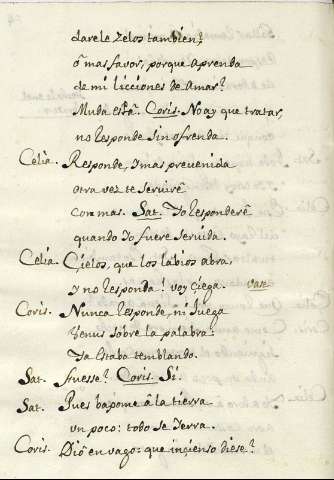 darele zelos tambien?
ô mas favor, porque aprenda
de mi licciones de amar?
Muda està. Coris. No ay que tratar,
no responde sin ofrenda.
Celia. Responde, y mas prevenida
otra vez te servirê
con mas. Sat. Yo responderê
quando yo fuere servida.
Celia. Cielos, que los labios abra,
y no responda! voy çiega. vase
Coris. Nunca responde, ni juega
Venus sobre la palabra.
Ya estaba temblando.
Sat. fuesse? Coris. Si.
Sat. Pues bajome â la tierra
un poco: todo se yerra.
Coris. Diô en vago: que inçienso diese?